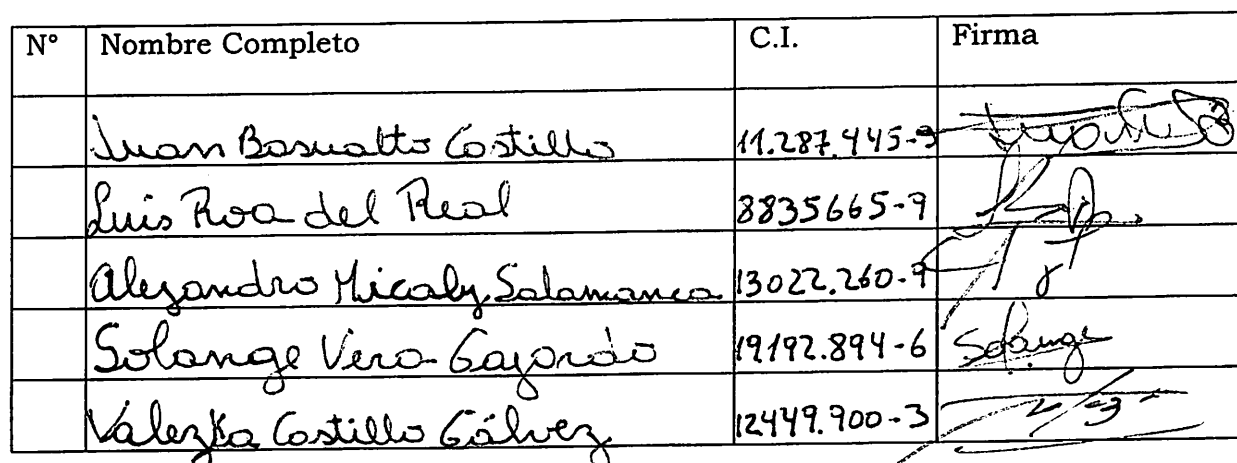 N° Nombre Completo C.I. Firma
Juan Basualto Castillo 11.287.445-9
Luis Roa del Real 8835665-9
Alejandro Micaly Salamanca 13022.260-9
Solange Vera Gajardo 19192.894-6 Solange
Valezka Castillo Gálvez 12449.900-3